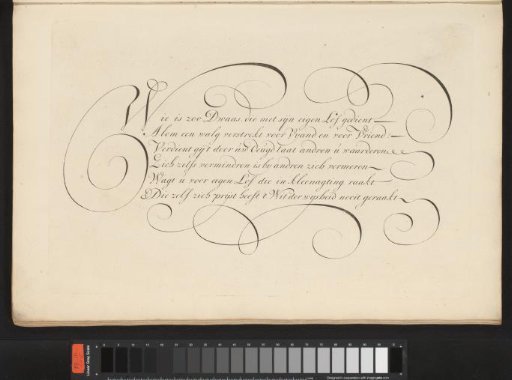 Wie is zoo Dwaas, die met syn eigen Lof gedient
Alom een walg verstrekt voor Vyand en voor Vriend
Verdient gy't door uw Deugd laat andren u waardeeren
Zich zelfs verminderen is by andren zich vermeeren
Wagt u voor eigen Lof die in kleenagting raakt
Die zelf zich pryst heeft 't Wit der wysheid nooit geraakt